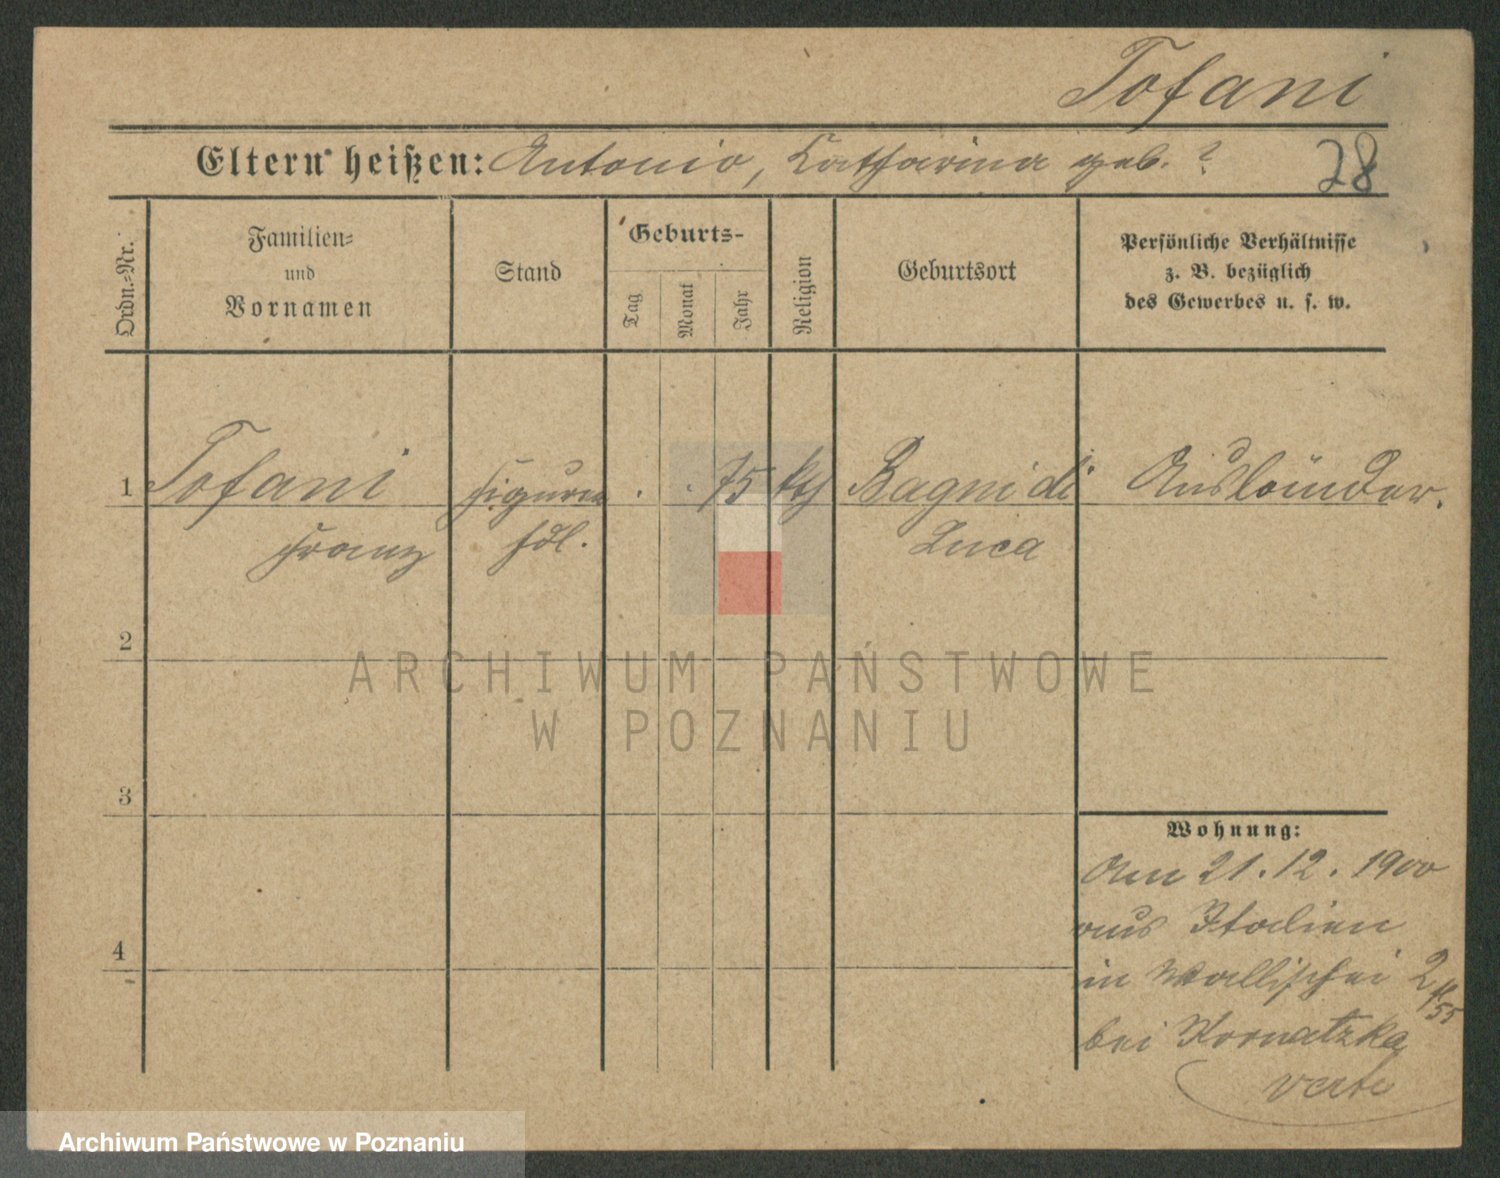 Tofani
Eltern heißen: Antonio, Catharina geb. ?
28
Ordn.-Nr.
Familien-
und
Vornamen
Stand
Geburts-
Tag
Monat
Jahr
Religion
Geburtsort
Persönliche Verhältnisse
z. B. bezüglich
des Gewerbes u. s. w.
1 Tofani Figuren . . 75 kth Bagni di Ausländer.
Franz hdl. Luca
2
3
4
Wohnung:
Am 21.12.1900
aus Italien
in Wallischei 2
bei Kornatzka
verte
ARCHIWUM PAŃSTWOWE
W POZNANIU
Archiwum Państwowe w Poznaniu